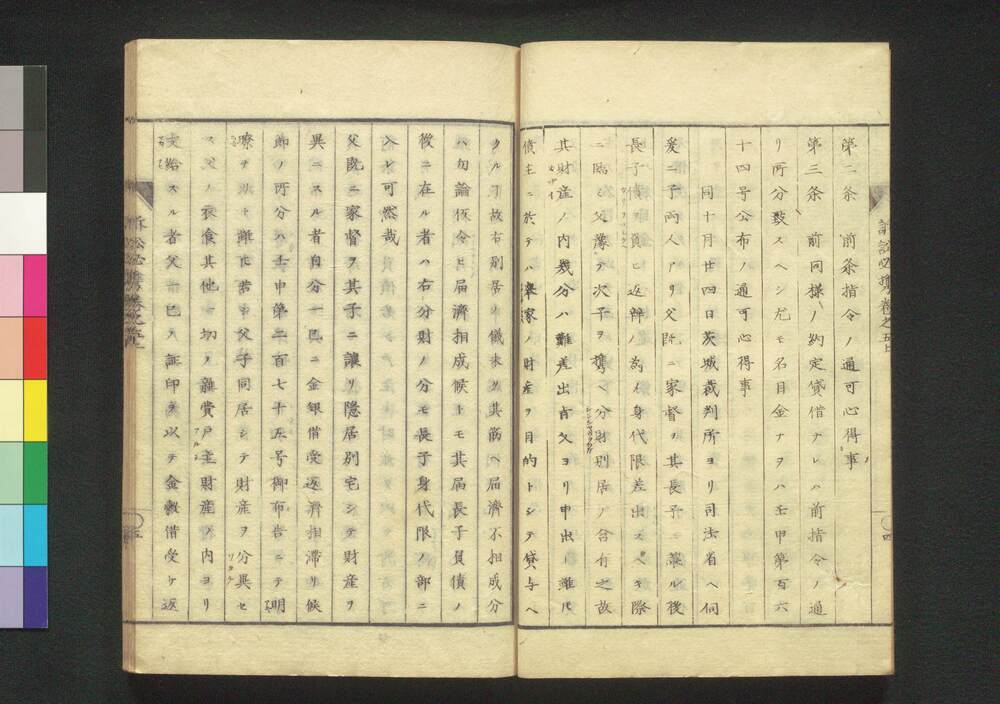 訴訟必携巻之五上
第二条　前条指令ノ通可心得事
第三条　前同様ノ約定貸借ナレハ前指令ノ通
リ所分致スヘシ尤モ名目金ナヲハ壬申第百六
十四号公布ノ通可心得事
同十月廿四日茨城裁判所ヨリ司法省ヘ伺
爰ニ子両人アリ父既ニ家督ヲ其長子ニ譲ル後
長子債ヲ負ヒ返辨ノ為メ身代限差出スヘキ際
ニ臨ミ父豫テ次子ヲ携ヘ分財別居ノ含有之故
其財産ノ内幾分ハ難差出旨父ヨリ申出雖𪜈
債主ニ於テハ挙家ノ財産ヲ目的トシテ貸与ヘ
タルヿ故右別居ノ儀未タ其筋ヘ届済不相成分
ハ勿論仮令ヒ届済相成候トモ其届長子負債ノ
後ニ在ル者ハ右分財ノ分モ長子身代限ノ部ニ
入レ可然哉
父既ニ家督ヲ其子ニ譲リ隠居別宅シテ財産ヲ
異ニスル者自分一己ニ金銀借受返済相滞リ候
節ノ所分ハ壬申第二百七十五号御布告ニテ明
瞭ヲリト雖𪜈若シ父子同居シテ財産ヲ分異セ
ス父ノ衣食其他一切ノ雑費戸主財産ノ内ヨリ
支給スル者父一己ヲ証印ヲ以テ金穀借受ケ返
訴訟必携巻之五上